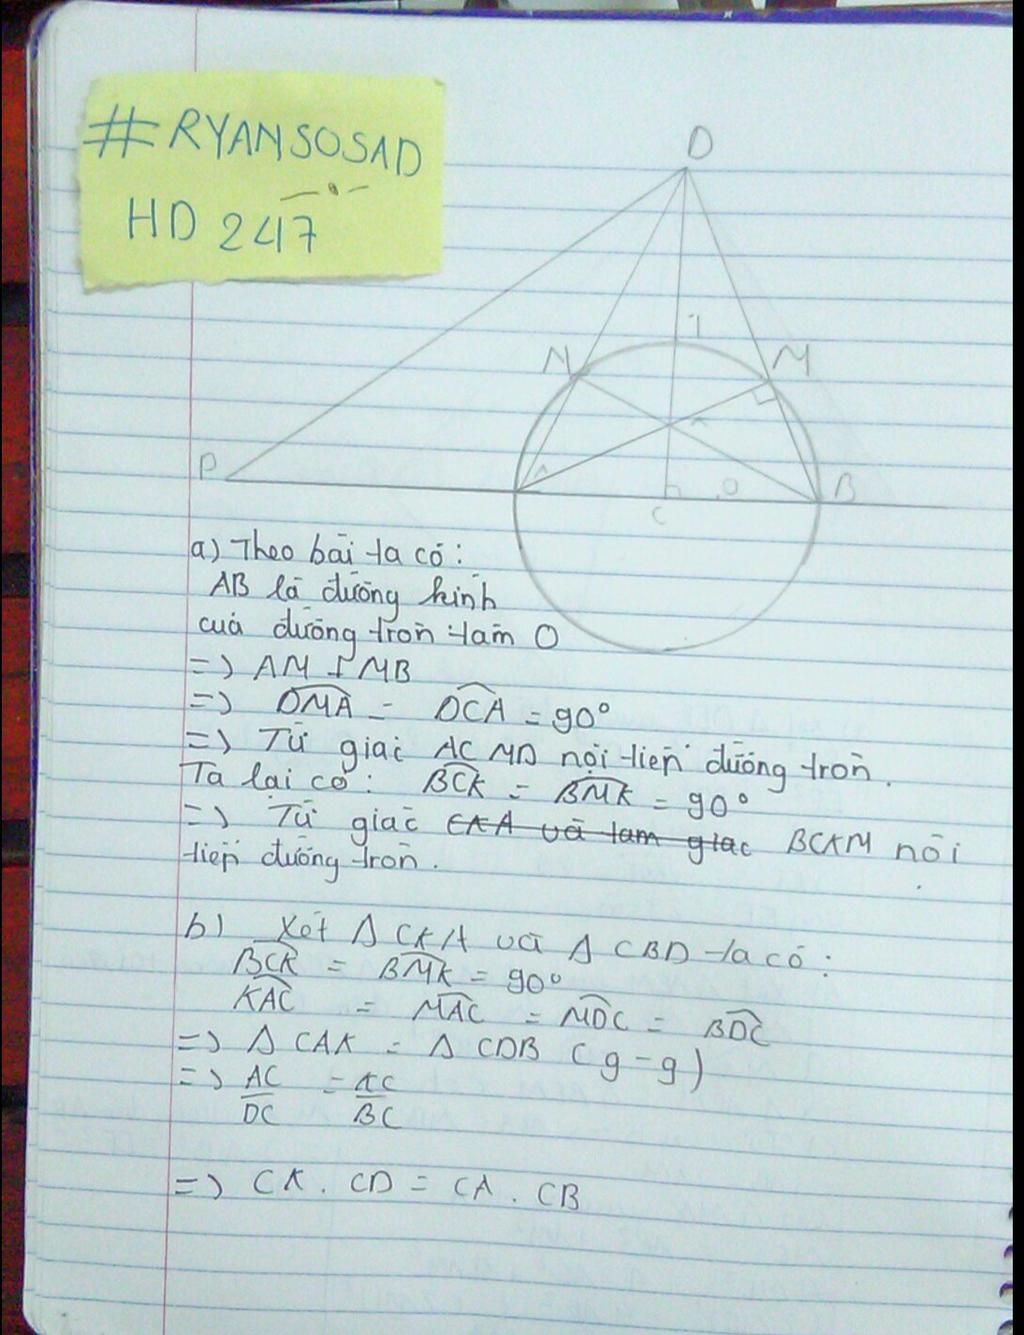 #RYANSOSAD
HD 247
D
I
N
M
P
A
K
O
B
C
a) Theo bài ta có:
AB là đường kính
của đường tròn tâm O
=> AM ⊥ MB
=> DMA = DCA = 90°
=> Tứ giác ACMD nội tiếp đường tròn.
Ta lại có: BCK = BMK = 90°
=> Tứ giác CKA và tam giác BCKM nội
tiếp đường tròn.
b) Xét Δ CKA và Δ CBD ta có:
BCK = BMK = 90°
KAC = MAC = MDC = BDC
=> Δ CAK = Δ CDB (g-g)
=> AC/DC = KC/BC
=> CK . CD = CA . CB